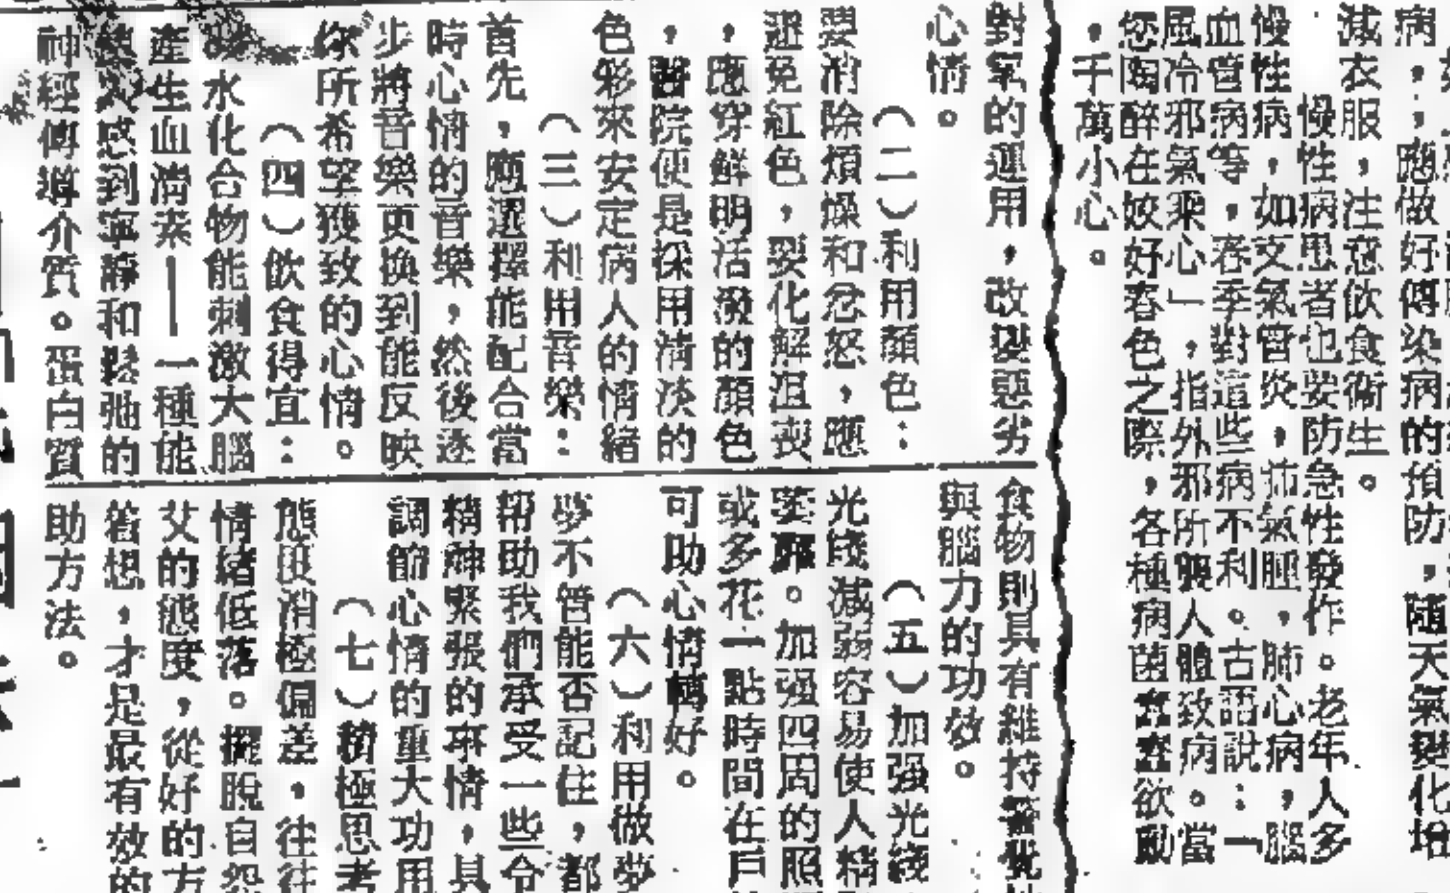 病,應做好傳染病的預防,隨天氣變化增
減衣服,注意飲食衞生。
慢性病患者也要防急性發作。老年人多
慢性病,如支氣管炎,肺氣腫,肺心病,腦
血管病等,春季對這些病不利。古語說:一
風冷邪氣乘心」,指外邪所襲人體致病。當
您陶醉在姣好春色之際,各種病菌蠢蠢欲動
,千萬小心。
對氧的運用,改變惡劣
心情。
(二)利用顏色:
要消除煩燥和忿怒,應
避免紅色,要化解沮喪
,應穿鮮明活潑的顏色
,醫院便是採用清淡的
色彩來安定病人的情緒
(三)利用音樂:
首先,應選擇能配合當
時心情的音樂,然後逐
步將音樂更換到能反映
你所希望獲致的心情。
(四)飲食得宜:
水化合物能刺激大腦
產生血清素——一種能
人感到寧靜和鬆弛的
神經傳導介質。蛋白質
食物則具有維持警覺
與腦力的功效。
(五)加强光綫
光綫減弱容易使人精
萎靡。加强四周的照
或多花一點時間在戶
可助心情轉好。
(六)利用做夢
夢不管能否記住,都
帮助我們承受一些令
精神緊張的事情,具
調節心情的重大功用
(七)積極思考
態度消極偏差,往往
情緒低落。擺脫自怨
艾的態度,從好的方
着想,才是最有效的
助方法。